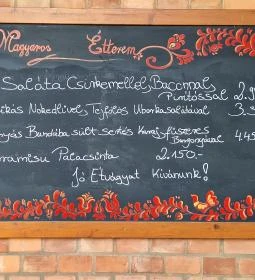 Magyaros Étterem
Saláta Csirkemellel, Baconnal,
Pirítóssal 2.9
Nokedlivel, Tejfölös Uborkasalátával 3.
Bundába sült sertés Karaj, fűszeres
Burgonyával 445
Palacsinta 2.150.-
Jó Étvágyat Kívánunk!